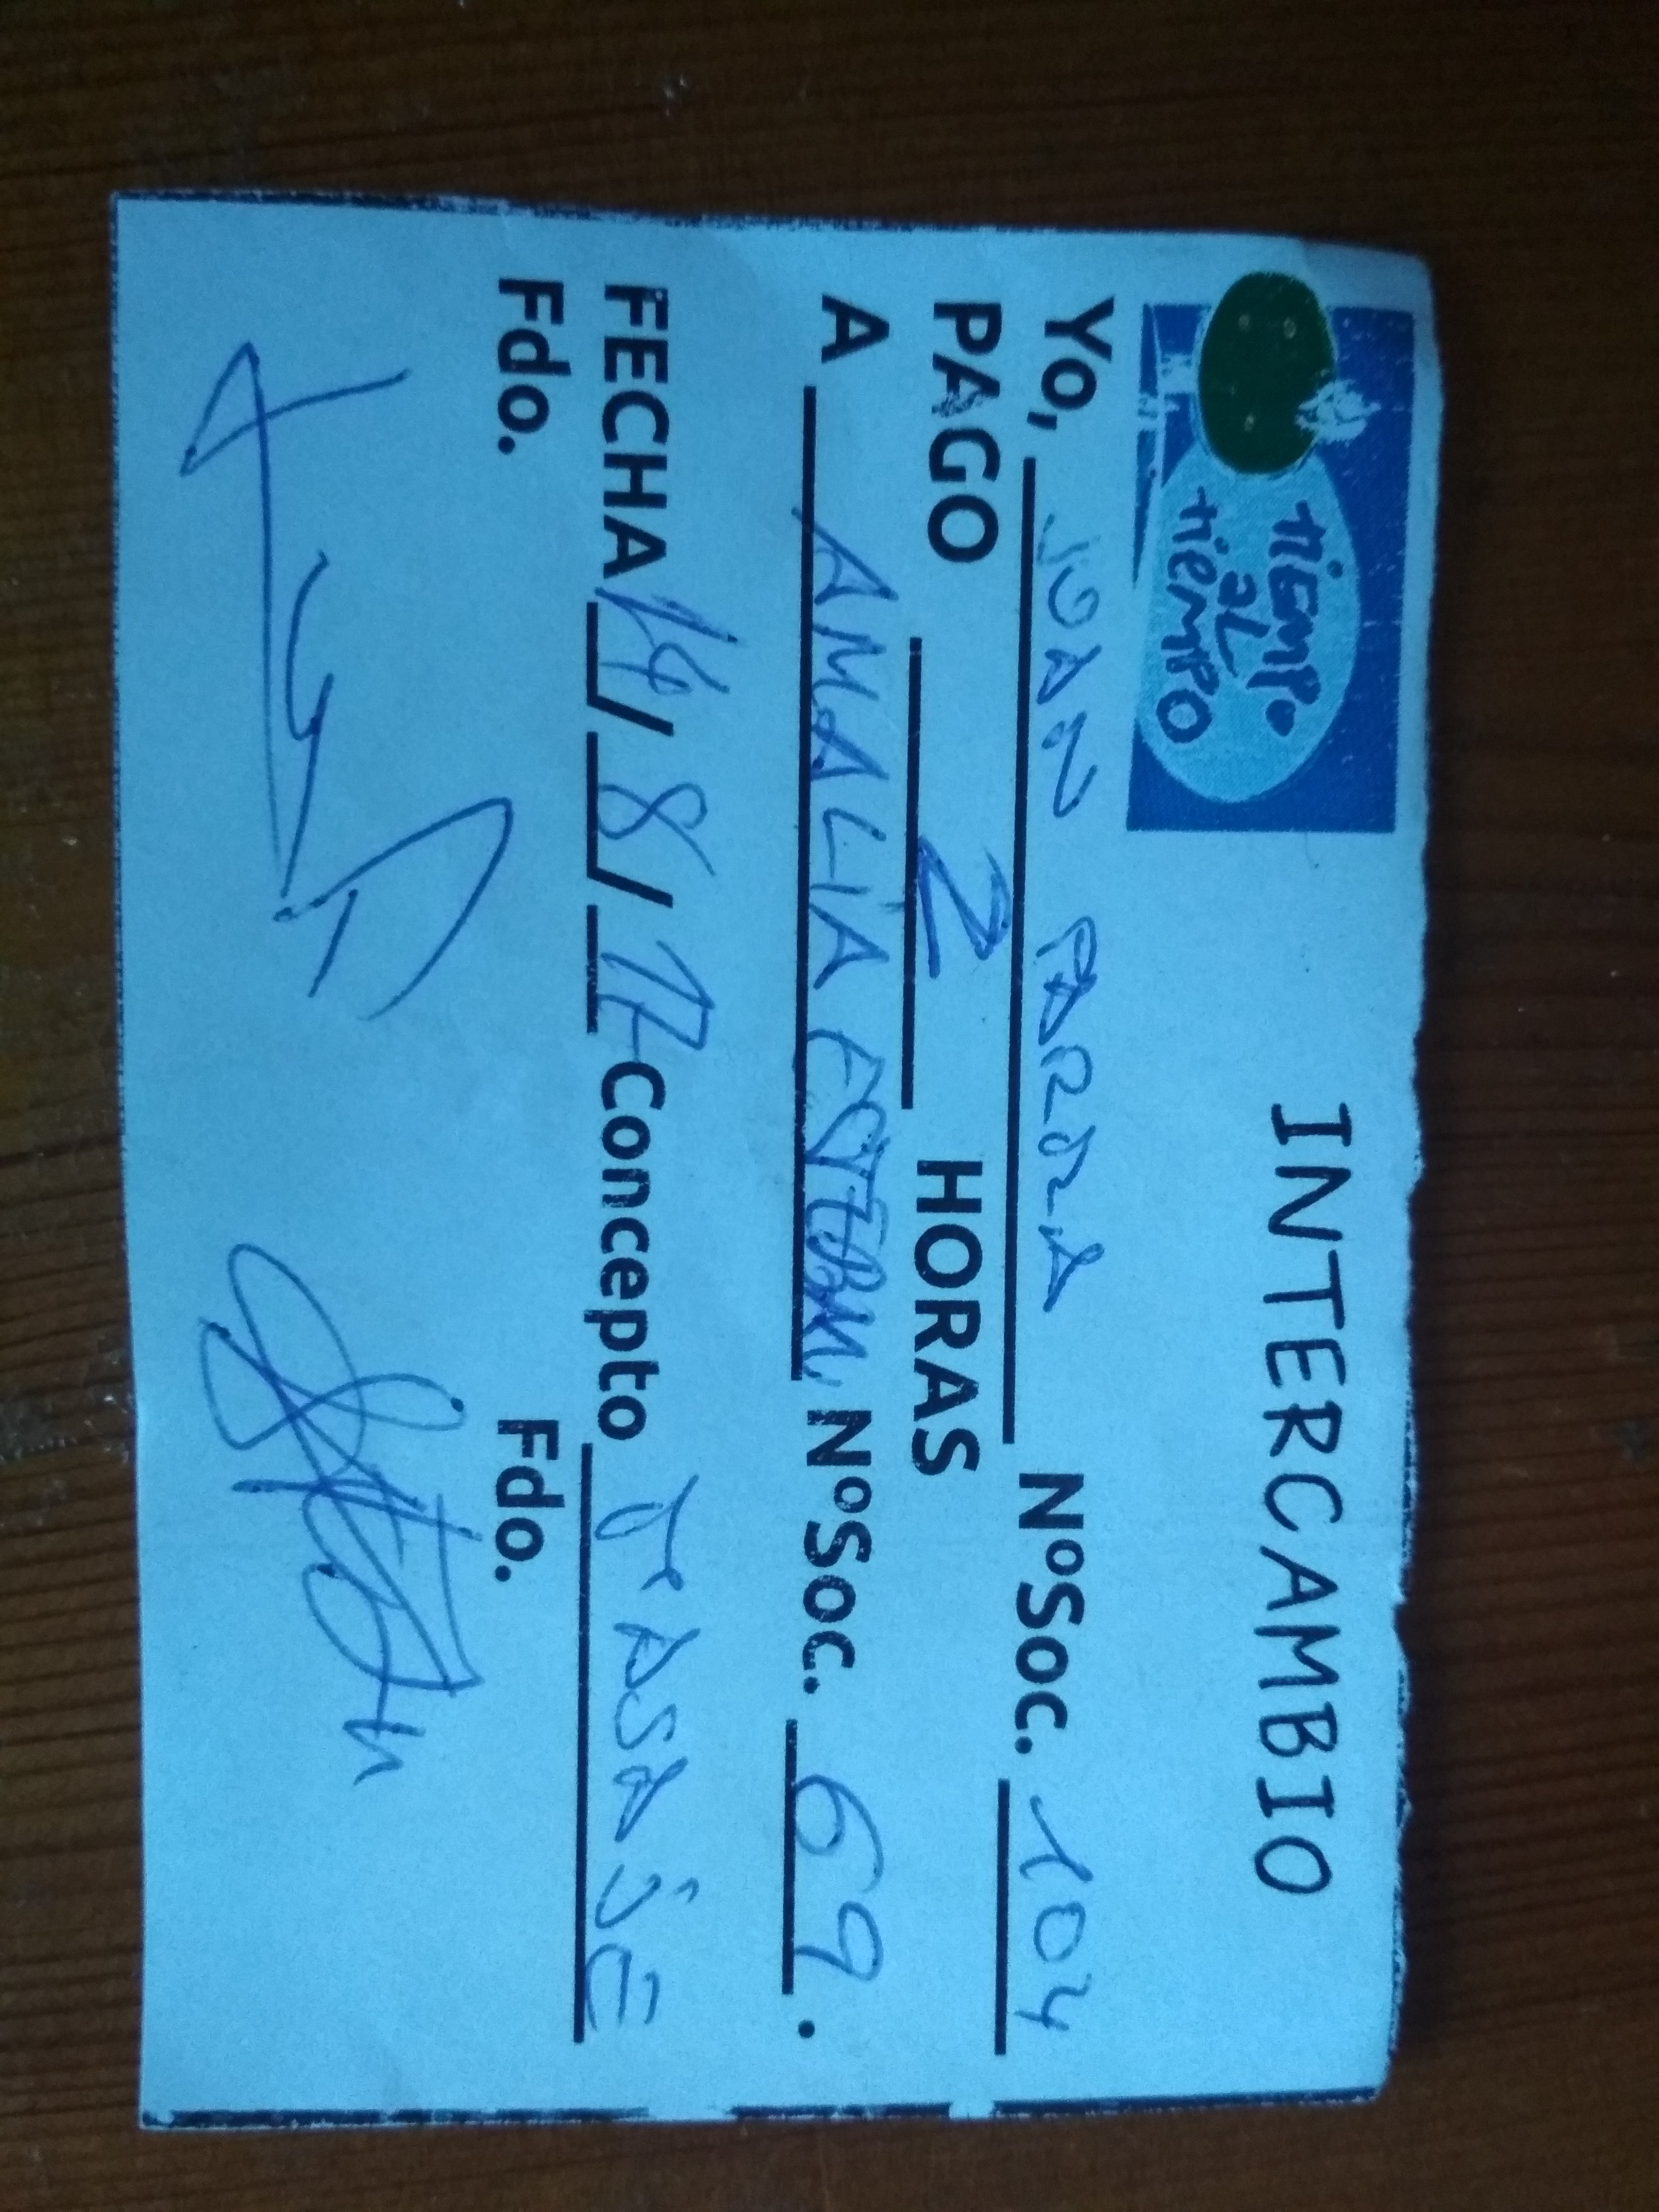 tiEMPo
aL
tiemPO
INTERCAMBIO
Yo, JUAN PARRA NºSoc. 104
PAGO 2 HORAS
A AMALIA ESTEBAN NºSoc. 69.
FECHA 14/8/17 Concepto MASAJE
Fdo. Fdo.